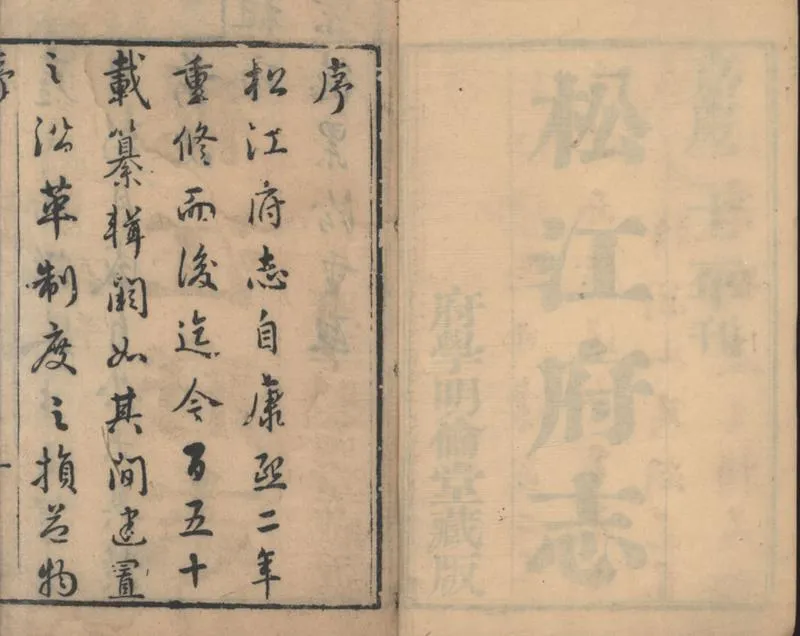 松江府志
府學明倫堂藏版
序
松江府志自康熙二年
重修而後迄今百五十
載纂輯闕如其間建置
之沿革制度之損益物
序
一